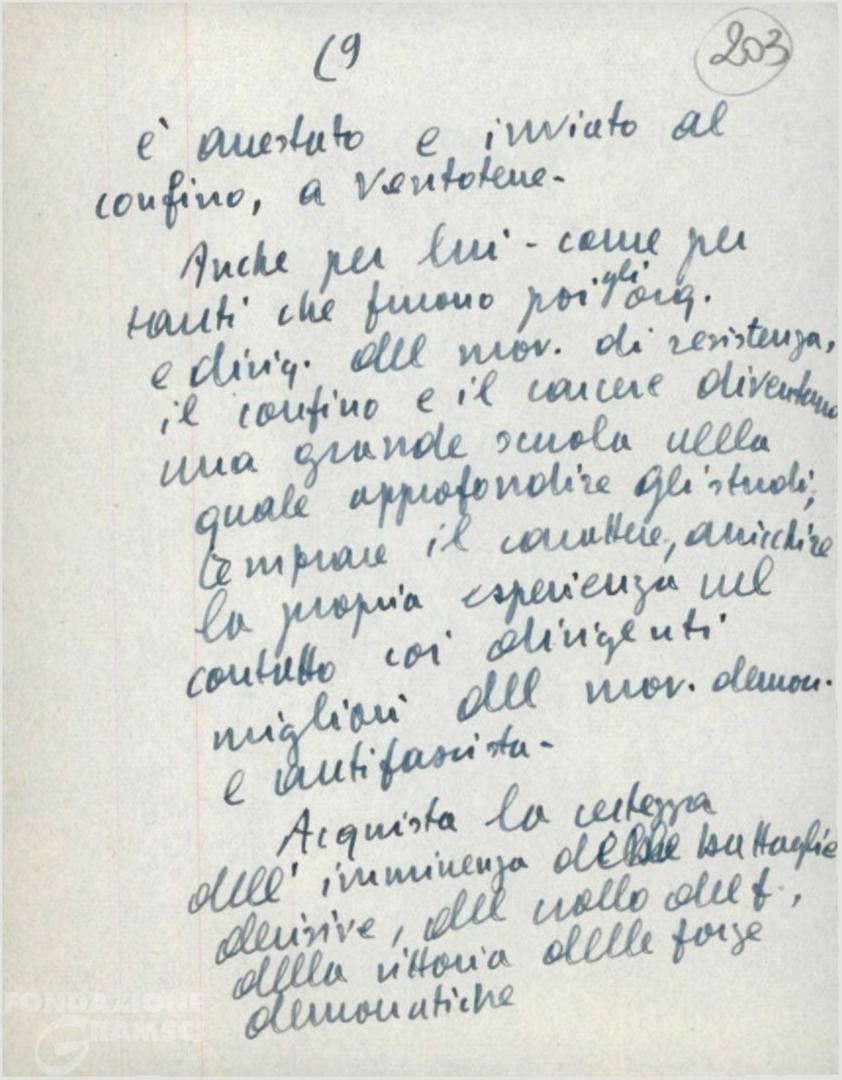 (9
203
è arrestato e inviato al
confino, a Ventotene -
Anche per lui - come per
tanti che furono poi gli org.
e dirig. del mov. di resistenza,
il confino e il carcere diventano
una grande scuola nella
quale approfondire gli studi,
temprare il carattere, arricchire
la propria esperienza nel
contatto coi dirigenti
migliori del mov. democr.
e antifascista -
Acquista la certezza
dell'imminenza delle battaglie
decisive, del crollo del f.,
della vittoria delle forze
democratiche
FONDAZIONE
GRAMSCI